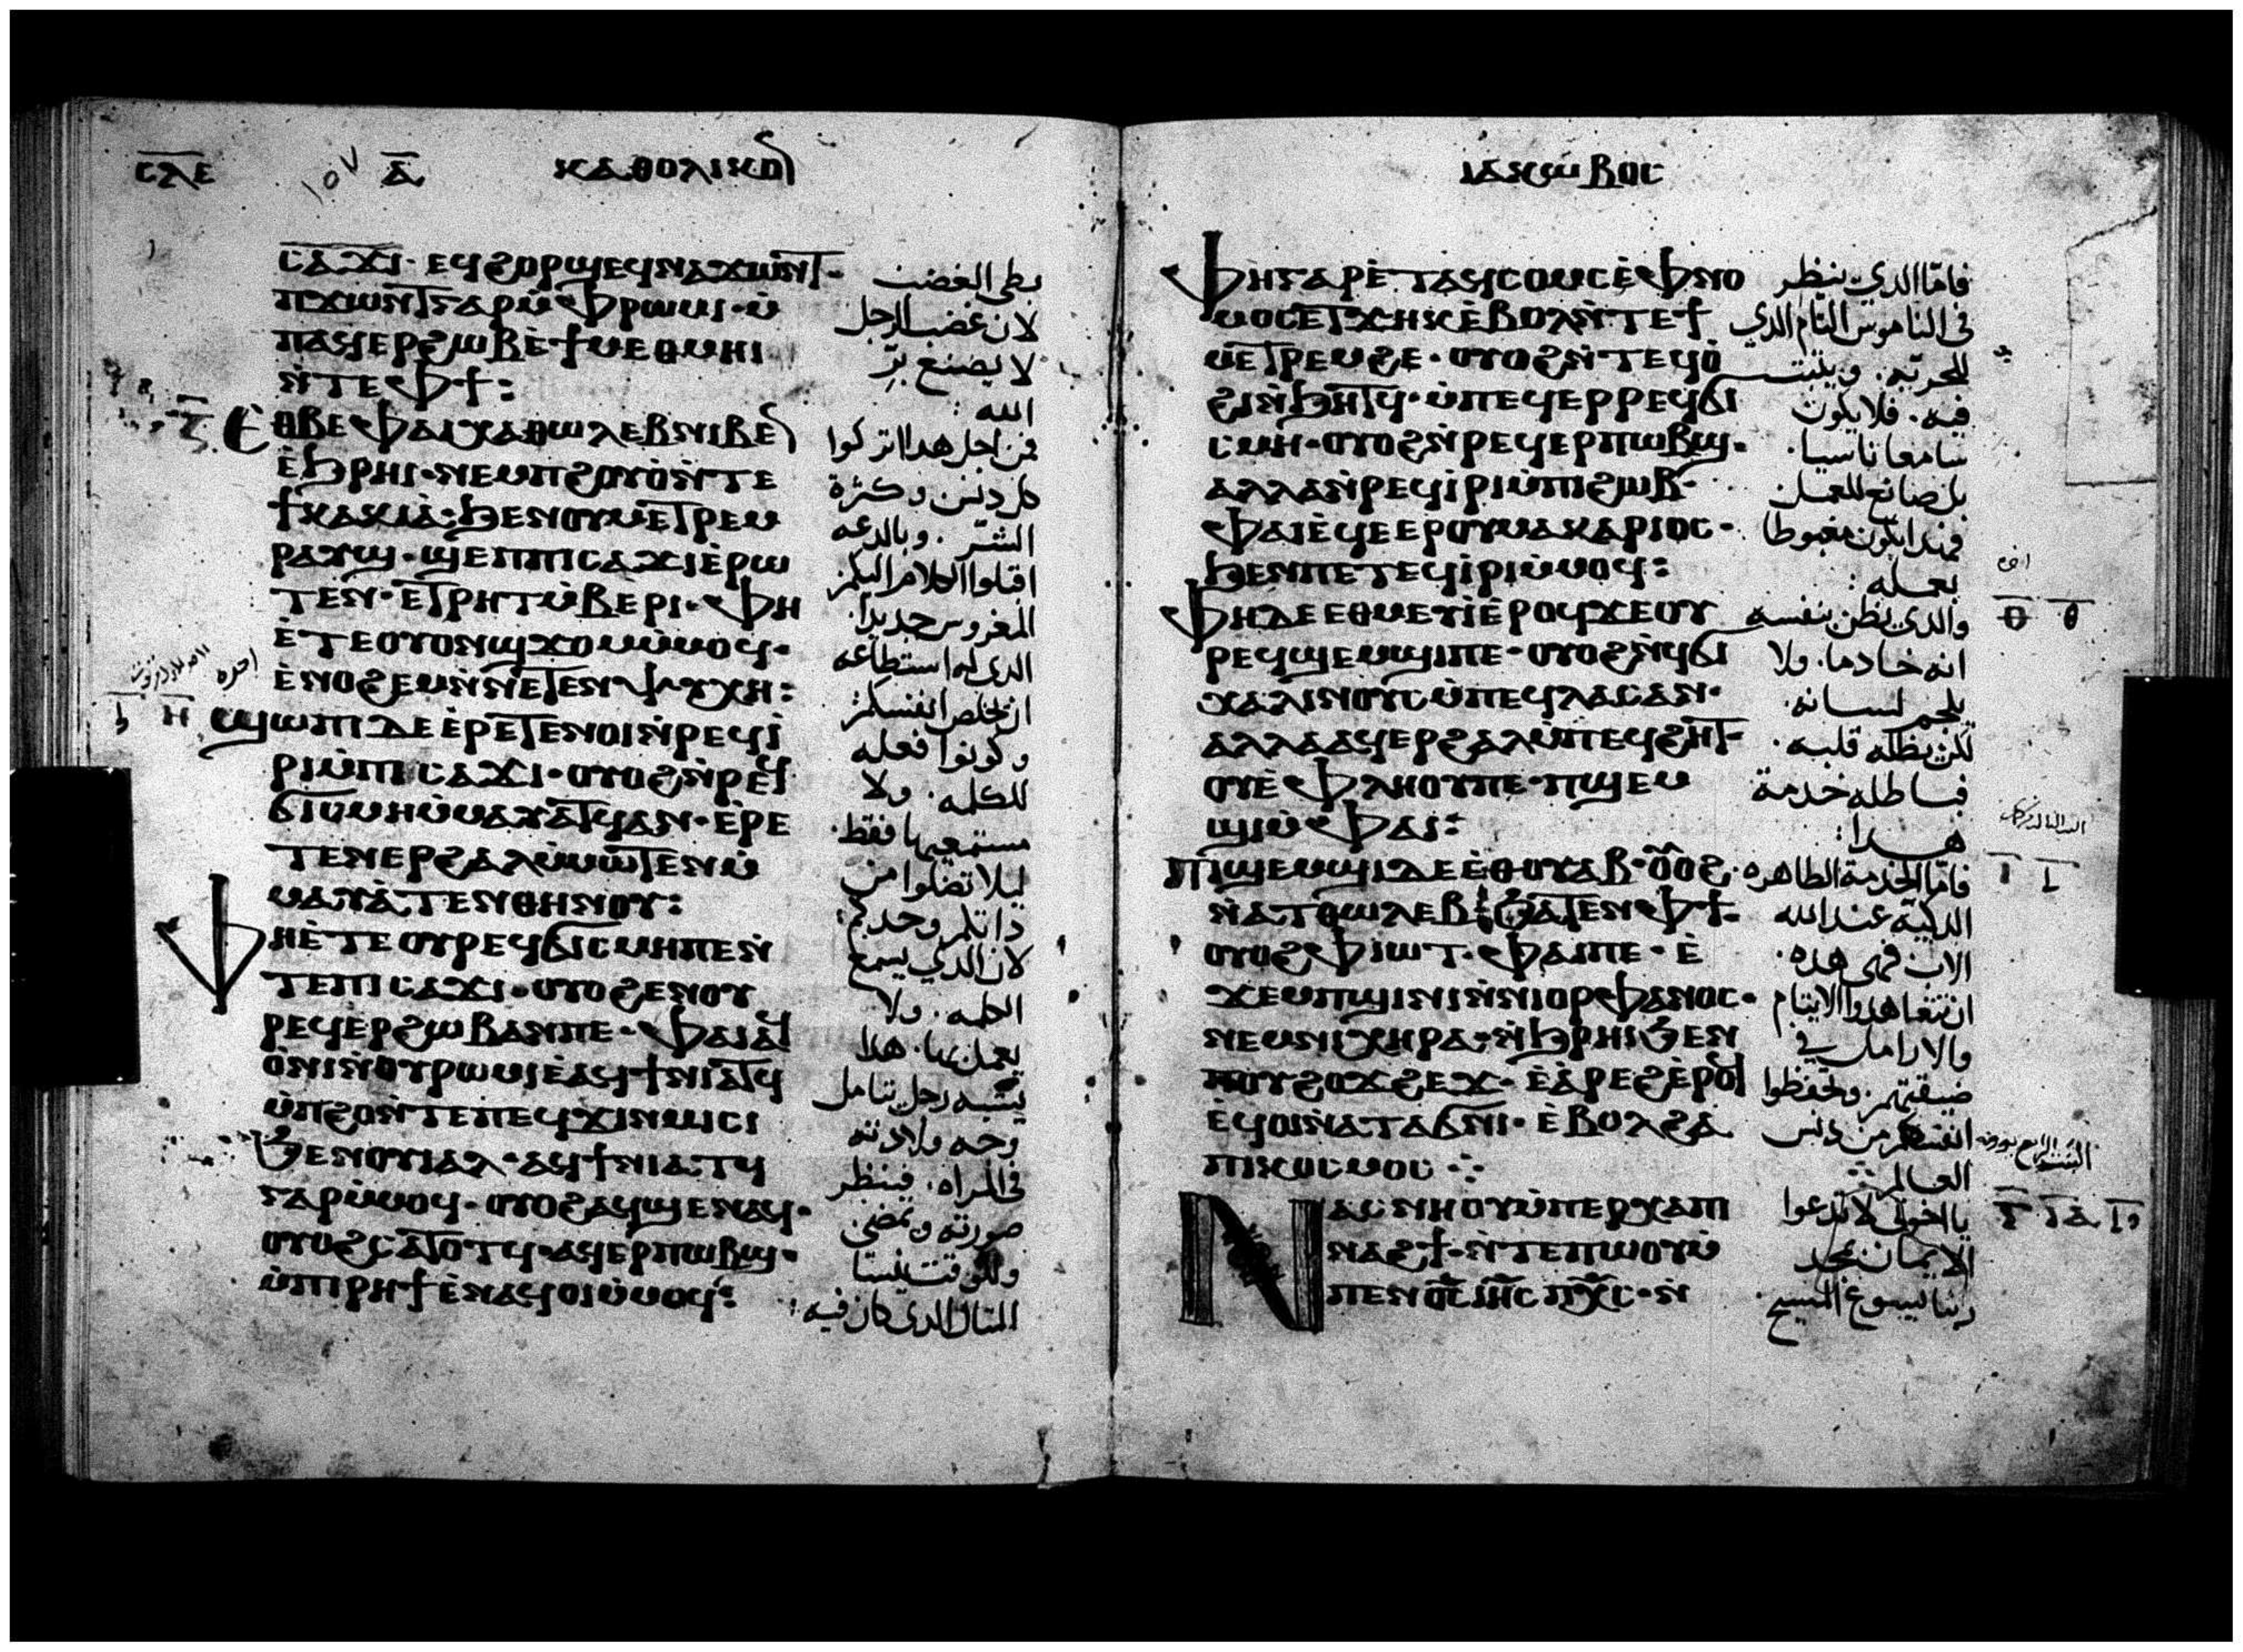 ⲥⲗⲉ ١٥٧ ⲁ̅ ⲕⲁⲑⲟⲗⲓⲕⲟⲛ
ⲥⲁϫⲓ· ⲉϥϩⲟⲣϣ ⲉϥⲛⲁϫⲱⲛⲧ· بطى الغضب
ⲡϫⲱⲛⲧ ⲅⲁⲣ ⲙ̀ⲫⲣⲱⲙⲓ· ⲙ̀ لان غضب الرجل
ⲡⲁϥⲉⲣϩⲱⲃ ⲉ̀ϯⲙⲉⲑⲙⲏⲓ لا يصنع برّ
ⲛ̀ⲧⲉ ⲫϯ: الله:
ⲍ ⲉ̀ⲑⲃⲉ ⲫⲁⲓ ⲭⲁ ⲑⲱⲗⲉⲃ ⲛⲓⲃⲉⲛ فمن اجل هدا اتركوا
ⲉ̀ϧⲣⲏⲓ· ⲛⲉⲙ ⲡϩⲟⲩⲟ̀ ⲛ̀ⲧⲉ كل دنس وكثرة
ϯⲕⲁⲕⲓⲁ̀· ϧⲉⲛ ⲟⲩⲙⲉⲧⲣⲉⲙ الشرّ. وبالدعه
ⲣⲁⲩϣ· ϣⲉⲡ ⲡⲓⲥⲁϫⲓ ⲉ̀ⲣⲱ اقبلوا الكلام اليكم
ⲧⲉⲛ· ⲉⲧⲣⲏⲧ ⲙ̀ⲃⲉⲣⲓ· ⲫⲏ المغروس جديدا.
ⲉ̀ⲧⲉ ⲟⲩⲟⲛ ϣϫⲟⲙ ⲙ̀ⲙⲟϥ· الدى له استطاعه
ⲉ̀ⲛⲟϩⲉⲙ ⲛ̀ⲛⲉⲧⲉⲛⲯⲩⲭⲏ: ان يخلص انفسكم:
ⲏ ϣⲱⲡⲓ ⲇⲉ ⲉ̀ⲣⲉⲧⲉⲛⲟⲓ ⲛ̀ⲣⲉϥⲓ̀ وكونوا فعله
ⲣⲓ ⲙ̀ⲡⲓⲥⲁϫⲓ· ⲟⲩⲟϩ ⲛ̀ⲣⲉϥ للكلمه. ولا
ϭⲓⲥⲙⲏ ⲙ̀ⲙⲁⲩⲁⲧϥ ⲁⲛ· ⲉ̀ⲣⲉ مستمعيها فقط.
ⲧⲉⲛⲉⲣϩⲁⲗ ⲙ̀ⲙⲱⲧⲉⲛ ⲙ̀ ليلا تضلوا من
ⲙⲁⲩⲁ̀ⲧⲉⲛ ⲑⲏⲛⲟⲩ: داتكم وحدكم:
ⲫⲏ ⲉ̀ⲧⲉ ⲟⲩⲣⲉϥϭⲓⲥⲙⲏ ⲡⲉ ⲛ̀ لان الدي يسمع
ⲧⲉ ⲡⲓⲥⲁϫⲓ· ⲟⲩⲟϩ ⲉⲛⲟⲩ الكلمه. ولا
ⲣⲉϥⲉⲣϩⲱⲃ ⲁⲛ ⲡⲉ· ⲫⲁⲓ ⲁϥ يعمل بها. هدا
ⲟ̀ⲛⲓ ⲛ̀ⲟⲩⲣⲱⲙⲓ ⲉ̀ⲁϥϯⲛⲓⲁⲧϥ يشبه رجل تامل
ⲙ̀ⲡϩⲟ ⲛ̀ⲧⲉ ⲡⲉϥϫⲓⲛⲙⲓⲥⲓ وجه ولادته
ϧⲉⲛ ⲟⲩⲓⲁⲗ· ⲁϥϯⲛⲓⲁⲧϥ في المراه. فينظر
ⲅⲁⲣ ⲙ̀ⲙⲟϥ· ⲟⲩⲟϩ ⲁϥϣⲉⲛⲁϥ· صورته ويمضي.
ⲟⲩⲟϩ ⲥⲁⲧⲟⲧϥ· ⲁϥⲉⲣⲡⲱⲃϣ·
ⲙ̀ⲡⲓⲣⲏϯ ⲉ̀ⲛⲁϥⲟⲓ ⲙ̀ⲙⲟϥ: المتال الدى كان فيه:
ⲓⲁⲕⲱⲃⲟⲥ
ⲫⲏ ⲅⲁⲣ ⲉ̀ⲧⲁϥⲥⲟⲙⲥ ⲉ̀ⲫⲛⲟ فامّا الدي ينظر
ⲙⲟⲥ ⲉⲧϫⲏⲕ ⲉ̀ⲃⲟⲗ ⲛ̀ⲧⲉ ϯ فى الناموس التام الدي
ⲙⲉⲧⲣⲉⲙϩⲉ· ⲟⲩⲟϩ ⲛ̀ⲧⲉϥⲟ̀ للحريّه. ويثبت
ϩⲓ ⲛ̀ϧⲏⲧϥ· ⲙ̀ⲡⲉϥⲉⲣ ⲣⲉϥϭⲓ فيه. فلا يكون
ⲥⲙⲏ· ⲟⲩⲟϩ ⲛ̀ⲣⲉϥⲉⲣⲡⲱⲃϣ· سامعا ناسيا.
ⲁⲗⲗⲁ ⲛ̀ⲣⲉϥⲓ̀ⲣⲓ ⲙ̀ⲡⲓϩⲱⲃ· بل صانع للعمل
ⲫⲁⲓ ⲉ̀ϥⲉⲉⲣ ⲟⲩⲙⲁⲕⲁⲣⲓⲟⲥ· فهدا يكون مغبوطا
ϧⲉⲛ ⲡⲉⲧⲉϥⲓ̀ⲣⲓ ⲙ̀ⲙⲟϥ: بعمله:
ⲫⲏ ⲇⲉ ⲉⲑⲙⲉⲩⲓ̀ ⲉ̀ⲣⲟϥ ϫⲉ ⲟⲩ والدى يظن بنفسه ⲑ ⲑ
ⲣⲉϥϣⲉⲙϣⲓ ⲡⲉ· ⲟⲩⲟϩ ⲛ̀ϥϭⲓ انه خادما. ولا
ⲭⲁⲗⲓⲛⲟⲩⲥ ⲙ̀ⲡⲉϥⲗⲁⲥ ⲁⲛ· يلجم لسانه.
ⲁⲗⲗⲁ ⲁϥⲉⲣϩⲁⲗ ⲙ̀ⲡⲉϥϩⲏⲧ· لكن يظله قلبه.
ⲟⲩⲉ̀ⲫⲗⲏⲟⲩ ⲡⲉ· ⲡϣⲉⲙ فباطله خدمة
ϣⲓ ⲙ̀ⲫⲁⲓ: هدا:
ⲡⲓϣⲉⲙϣⲓ ⲇⲉ ⲉ̀ⲑⲟⲩⲁⲃ· ⲟⲟϩ· فامّا الخدمة الطاهره ⲓ ⲓ
ⲛ̀ⲁⲧⲑⲱⲗⲉⲃ: ϧⲁⲧⲉⲛ ⲫϯ· الدكيّه عند الله
ⲟⲩⲟϩ ⲫⲓⲱⲧ· ⲫⲁⲓ ⲡⲉ· ⲉ̀ الاب فهى هده.
ϫⲉⲙⲡϣⲓⲛⲓ ⲛ̀ⲛⲓⲟⲣⲫⲁⲛⲟⲥ· ان تتعاهدوا الايتام
ⲛⲉⲙ ⲛⲓⲭⲏⲣⲁ· ⲛ̀ϧⲣⲏⲓ ϧⲉⲛ والارامل في
ⲡⲟⲩϩⲟϫϩⲉϫ· ⲉ̀ⲁ̀ⲣⲉϩ ⲉ̀ⲣⲟϥ ضيقتهم. وتحفظوا
ⲉ̀ϥⲟⲓ ⲛ̀ⲁⲧⲁϭⲛⲓ· ⲉ̀ⲃⲟⲗ ϩⲁ انفسكم من دنس
ⲡⲓⲕⲟⲥⲙⲟⲥ ⁘ العالم⁘
ⲛⲁⲥⲛⲏⲟⲩ ⲙ̀ⲡⲉⲣⲭⲁ ⲡⲓ يا اخوتى لا تدعوا
ⲛⲁϩϯ· ⲛ̀ⲧⲉ ⲡⲱⲟⲩ ⲙ̀ الايمان بمجد
ⲡⲉⲛⲟ̅ⲥ̅ ⲓⲏ̅ⲥ̅ ⲡⲭ̅ⲥ̅· ⲛ ربنا يسوع المسيح.